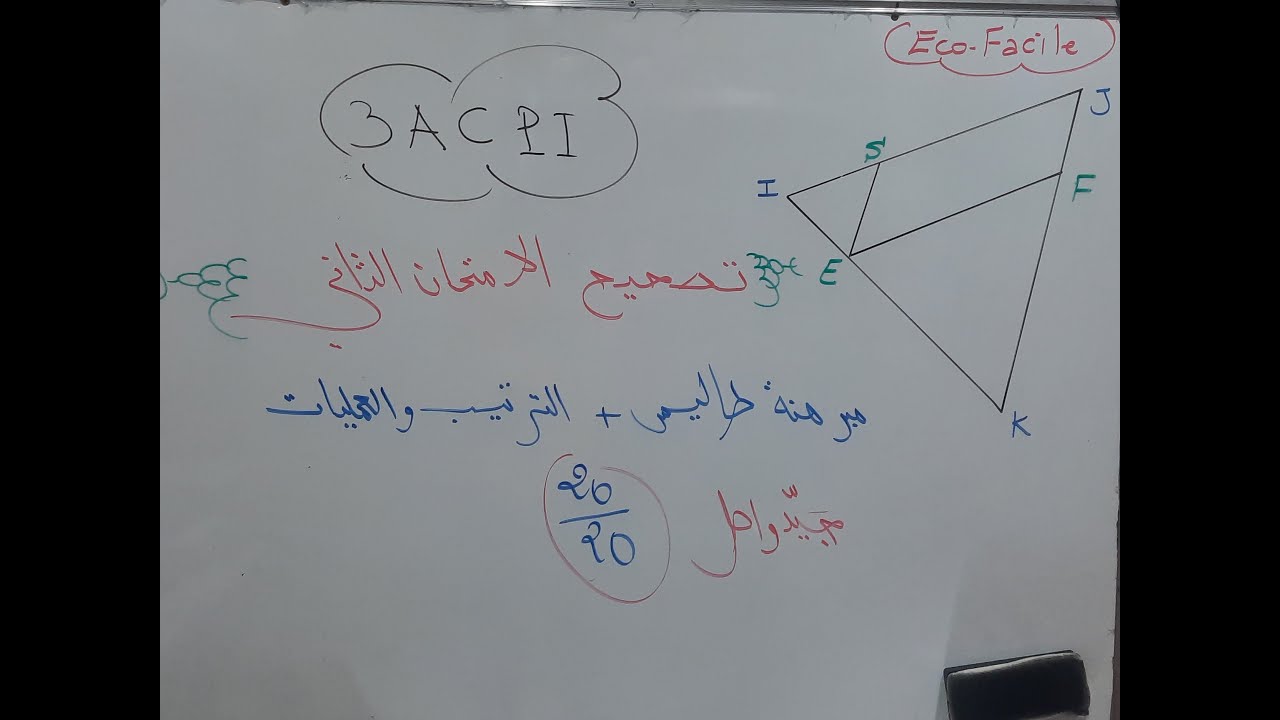 Eco-Facile
3ACPI
تصحيح الامتحان الثاني
مبرهنة طاليس + الترتيب والعمليات
جيّد واصل
20
20
J
S
I
F
E
K